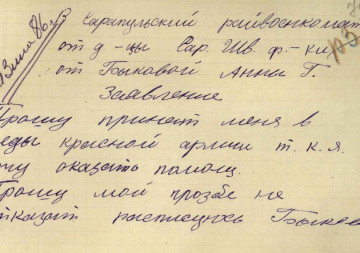 Сарапульский райвоенкомат
от д-цы Сар. Шв. ф.-ки
от Быковой Анны Г.
Заявление
Прошу принят меня в
ряды красной армии т.к. я
хочу оказать помощ.
Прошу мой прозбе не
отказат